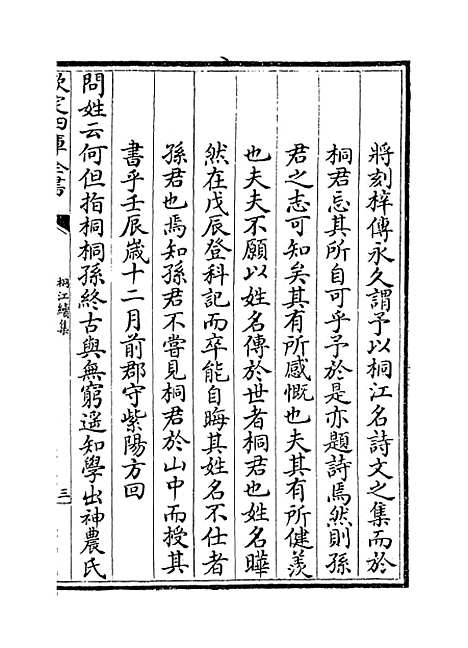 將刻梓傳永久謂予以桐江名詩文之集而於
桐君忘其所自可乎予於是亦題詩焉然則孫
君之志可知矣其有所感慨也夫其有所健羨
也夫夫不願以姓名傳於世者桐君也姓名曄
然在戊辰登科記而卒能自晦其姓名不仕者
孫君也焉知孫君不嘗見桐君於山中而授其
書乎壬辰歲十二月前郡守紫陽方回
問姓云何但指桐桐孫終古與無窮遥知學出神農氏
欽定四庫全書
桐江續集
三